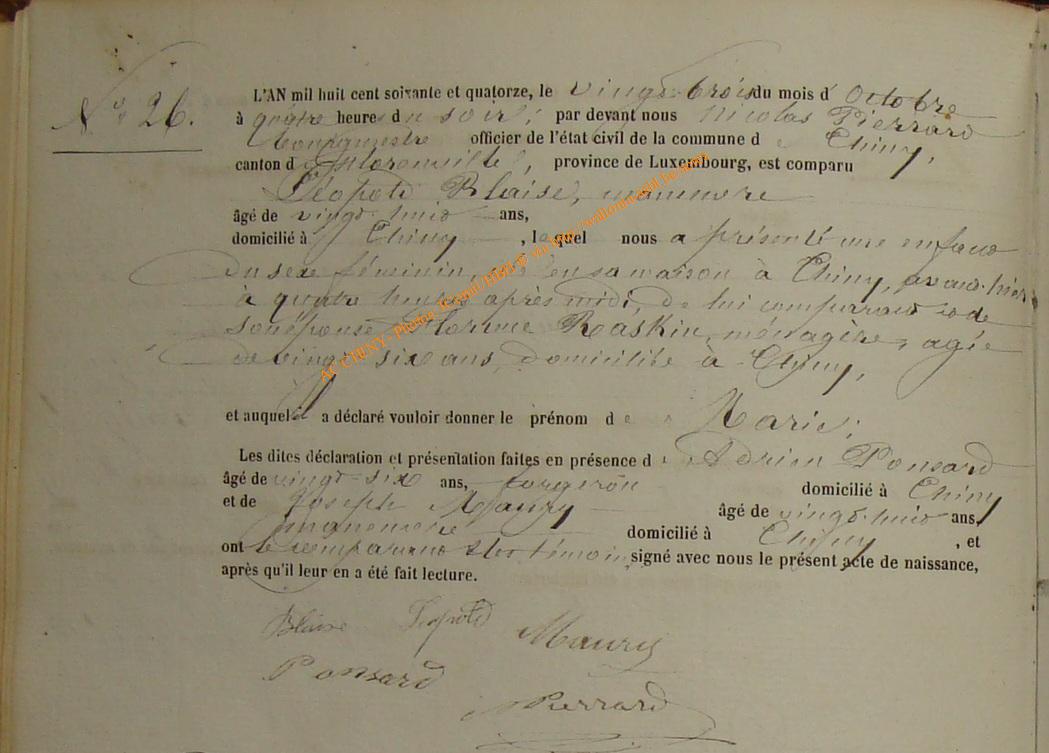 N° 26.
L'AN mil huit cent soixante et quatorze, le vingt-trois du mois d'Octobre
à quatre heures du soir; par devant nous Nicolas Pierrard
bourgmestre officier de l'état civil de la commune de Chiny,
canton de Florenville, province de Luxembourg, est comparu
Léopold Blaise, manœuvre
âgé de vingt-huit ans,
domicilié à Chiny, lequel nous a présenté une enfant
du sexe féminin, née en sa maison à Chiny, avant-hier
à quatre heures après midi, de lui comparant et de
son épouse Florence Raskin, ménagère, agée
de vingt six ans, domiciliée à Chiny,
et auquel a déclaré vouloir donner le prénom de Marie;
Les dites déclaration et présentation faites en présence d'Adrien Ponsard
âgé de vingt-six ans, forgeron domicilié à Chiny
et de Joseph Maury âgé de vingt-huit ans,
domicilié à Chiny, et
ont le comparant & les témoins signé avec nous le présent acte de naissance,
après qu'il leur en a été fait lecture.
Blaise Léopold Maury
Ponsard
Pierrard